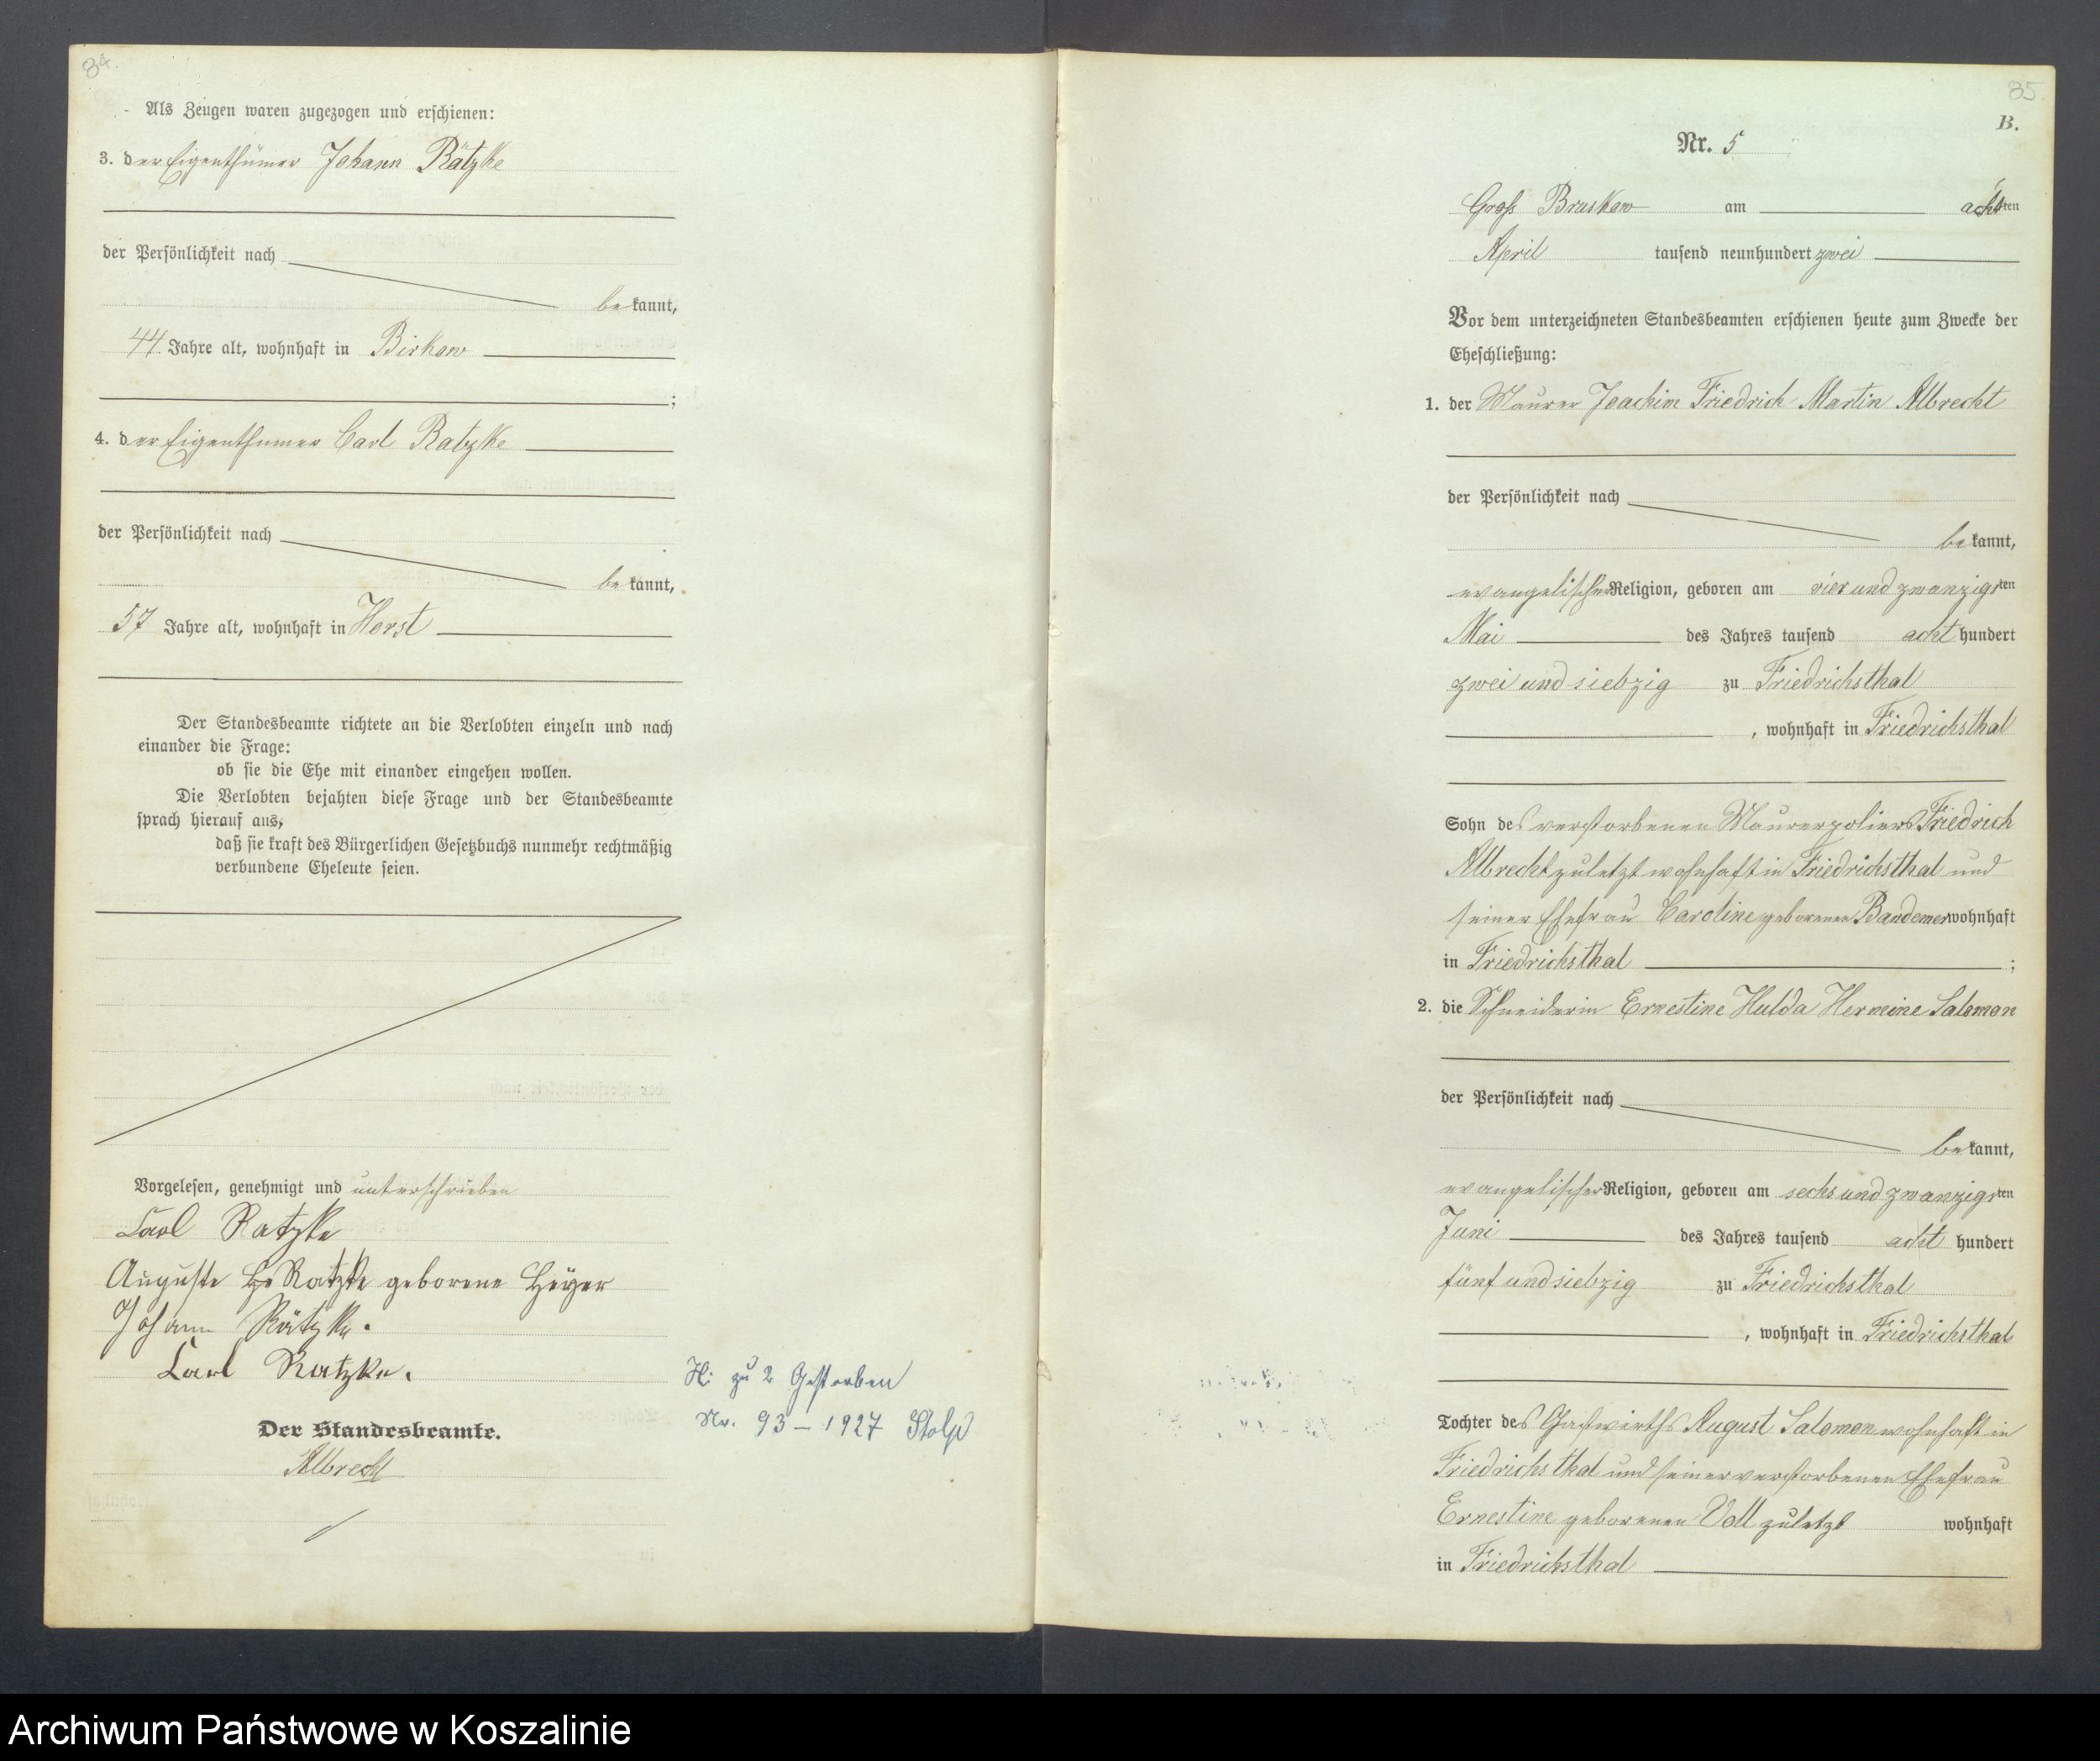 34.
Als Zeugen waren zugezogen und erschienen:
3. der Eigenthümer Johann Rätzke
der Persönlichkeit nach
bekannt,
44 Jahre alt, wohnhaft in Birkow
;
4. der Eigenthümer Carl Ratzke
der Persönlichkeit nach
bekannt,
57 Jahre alt, wohnhaft in Horst
Der Standesbeamte richtete an die Verlobten einzeln und nach
einander die Frage:
ob sie die Ehe mit einander eingehen wollen.
Die Verlobten bejahten diese Frage und der Standesbeamte
sprach hierauf aus,
daß sie kraft des Bürgerlichen Gesetzbuchs nunmehr rechtmäßig
verbundene Eheleute seien.
Vorgelesen, genehmigt und unterschrieben
Carl Ratzke
Auguste Ratzke geborene Heyer
Johann Rätzke.
Carl Ratzke.
H: zu 2 Gestorben
Nr. 93 – 1927 Stolp
Der Standesbeamte.
Albrecht
35.
B.
Nr. 5
Groß Bruskow am achten
April tausend neunhundert zwei
Vor dem unterzeichneten Standesbeamten erschienen heute zum Zwecke der
Eheschließung:
1. der Maurer Joachim Friedrich Martin Albrecht
der Persönlichkeit nach
bekannt,
evangelischer Religion, geboren am vier und zwanzigsten
Mai des Jahres tausend acht hundert
zwei und siebzig zu Friedrichsthal
, wohnhaft in Friedrichsthal
Sohn des verstorbenen Maurerpoliers Friedrich
Albrecht zuletzt wohnhaft in Friedrichsthal und
seiner Ehefrau Caroline geborenen Bandemer wohnhaft
in Friedrichsthal ;
2. die Schneiderin Ernestine Hulda Hermine Salomon
der Persönlichkeit nach
bekannt,
evangelischer Religion, geboren am sechs und zwanzigsten
Juni des Jahres tausend acht hundert
fünf und siebzig zu Friedrichsthal
, wohnhaft in Friedrichsthal
Tochter des Gastwirths August Salomon wohnhaft in
Friedrichsthal und seiner verstorbenen Ehefrau
Ernestine geborenen Voll zuletzt wohnhaft
in Friedrichsthal
Archiwum Państwowe w Koszalinie